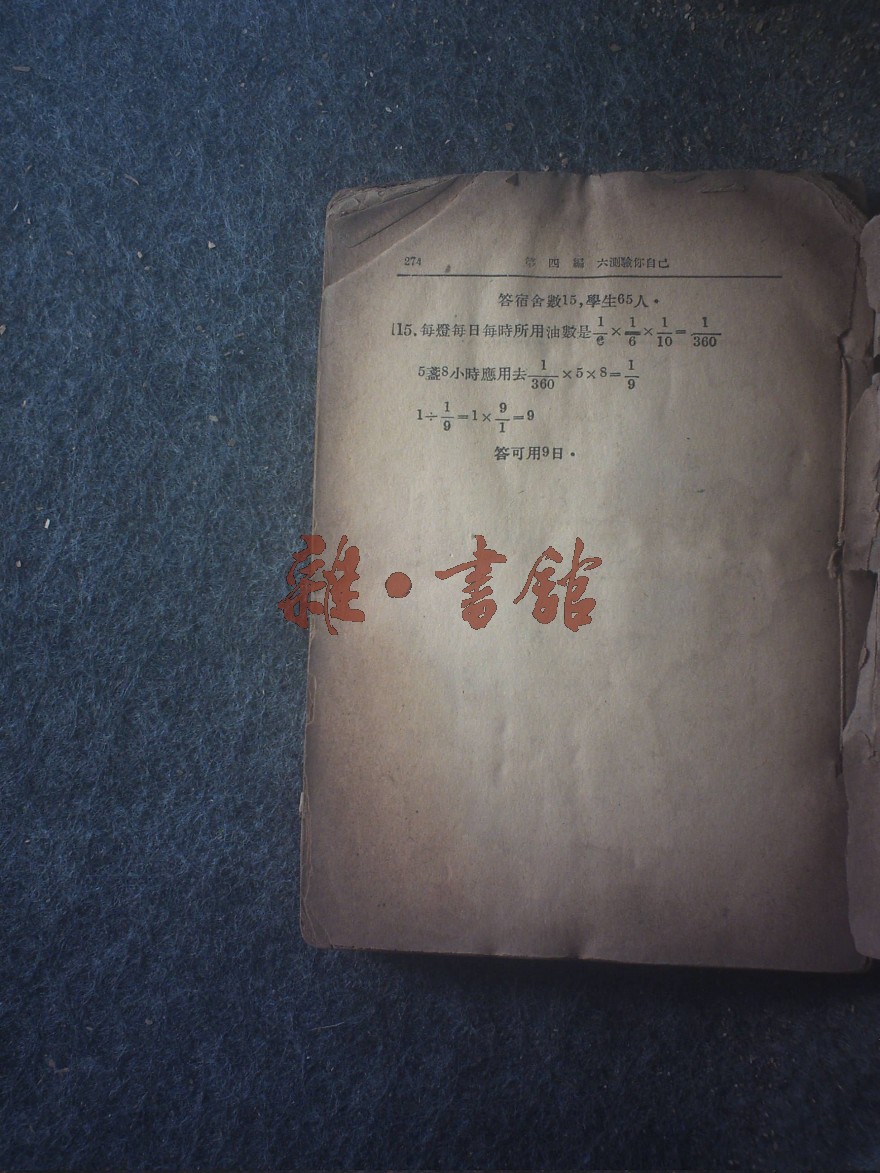 274 第四編 六測驗你自己
答宿舍數15,學生65人・
115.每燈每日每時所用油數是1/6×1/6×1/10=1/360
5盞8小時應用去1/360×5×8=1/9
1÷1/9=1×9/1=9
答可用9日・
雜・書館